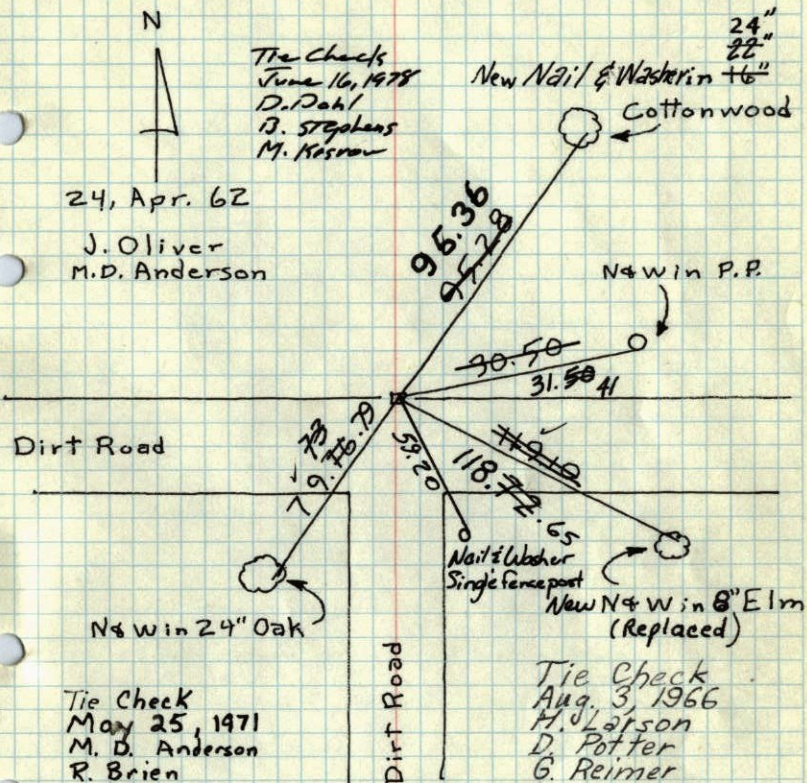 N
Tie Check
June 16, 1978
D. Dahl
B. Stephens
M. Kosnow
24"
22"
New Nail & Washer in 16"
Cottonwood
24, Apr. 62
J. Oliver
M.D. Anderson
95.36
95.28
N&W in P.P.
30.50
31.50 41
Dirt Road
79.
73
76.79
59.20
119.10
118.72.65
Nail & Washer
Single fence post
New N&W in 8" Elm
(Replaced)
N&W in 24" Oak
Dirt Road
Tie Check
May 25, 1971
M. D. Anderson
R. Brien
Tie Check
Aug. 3, 1966
H. Larson
D. Potter
G. Reimer